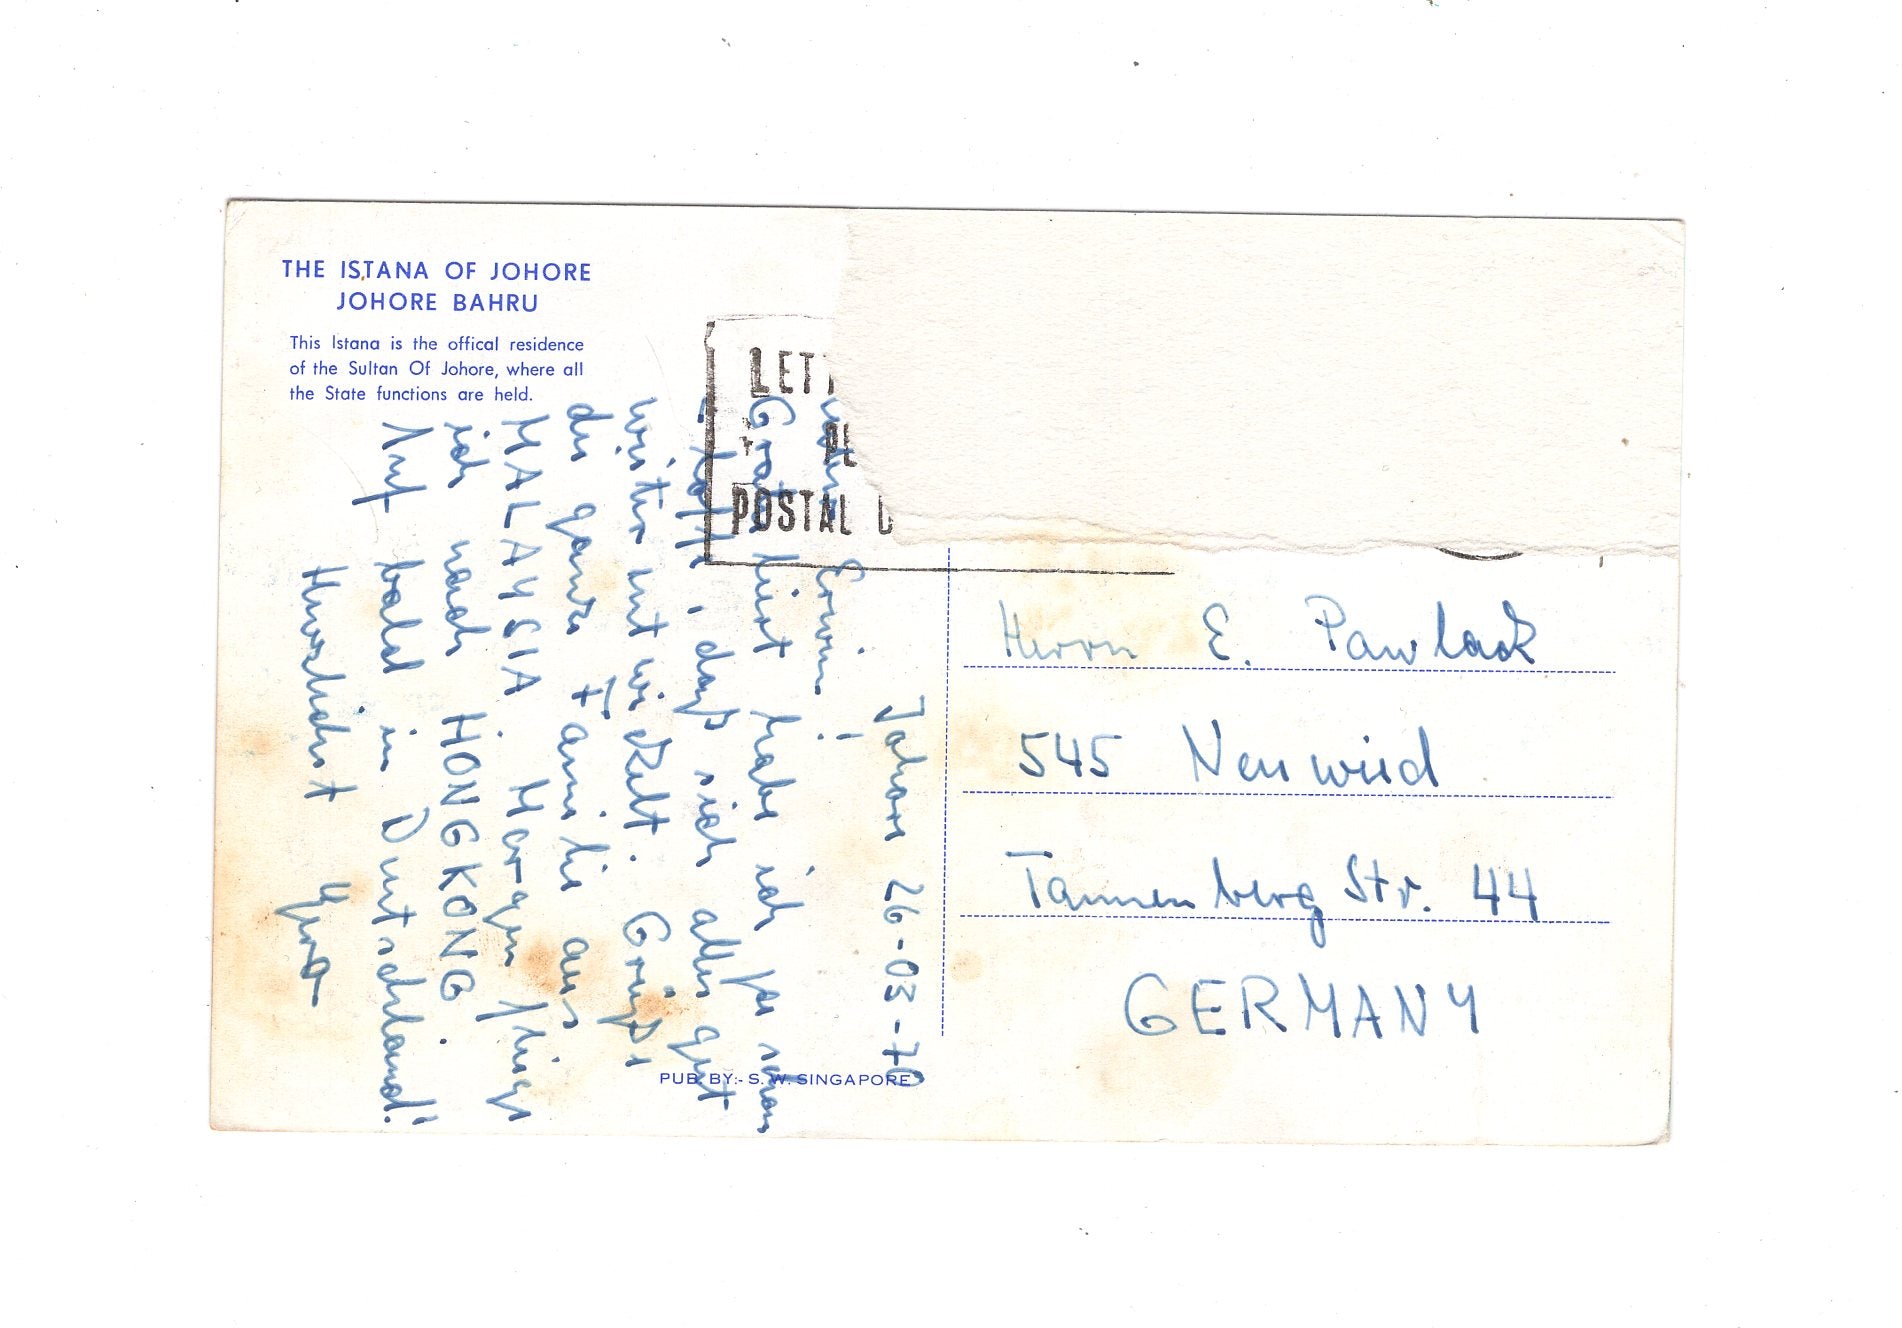 THE ISTANA OF JOHORE
JOHORE BAHRU
This Istana is the offical residence
of the Sultan Of Johore, where all
the State functions are held.
POSTAL
Johore 26-03-70
Erwin!
habe ich ja schon
hoffe, daß sich alles gut
weiter entwickelt. Grüße
die ganze Familie aus
MALAYSIA Morgen fliege
ich nach HONGKONG
Auf bald in Deutschland!
Herzlichst
Herrn E. Pawlack
545 Neuwied
Tannenberg Str. 44
GERMANY
PUB BY:- S. W. SINGAPORE